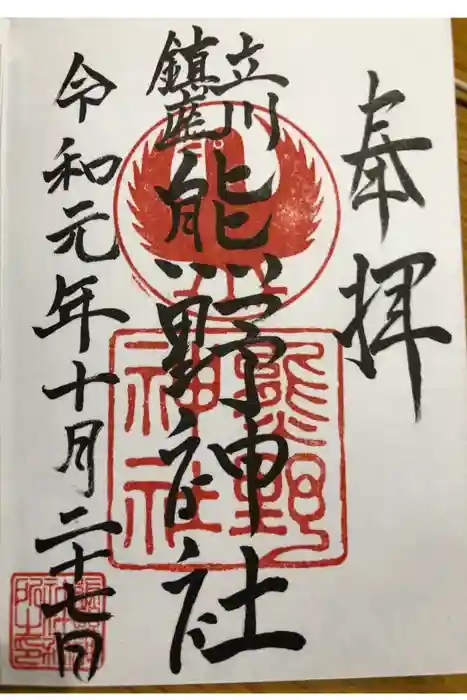 奉拝
立川
鎮座
熊野神社
令和元年十月二十七日
熊野
神社